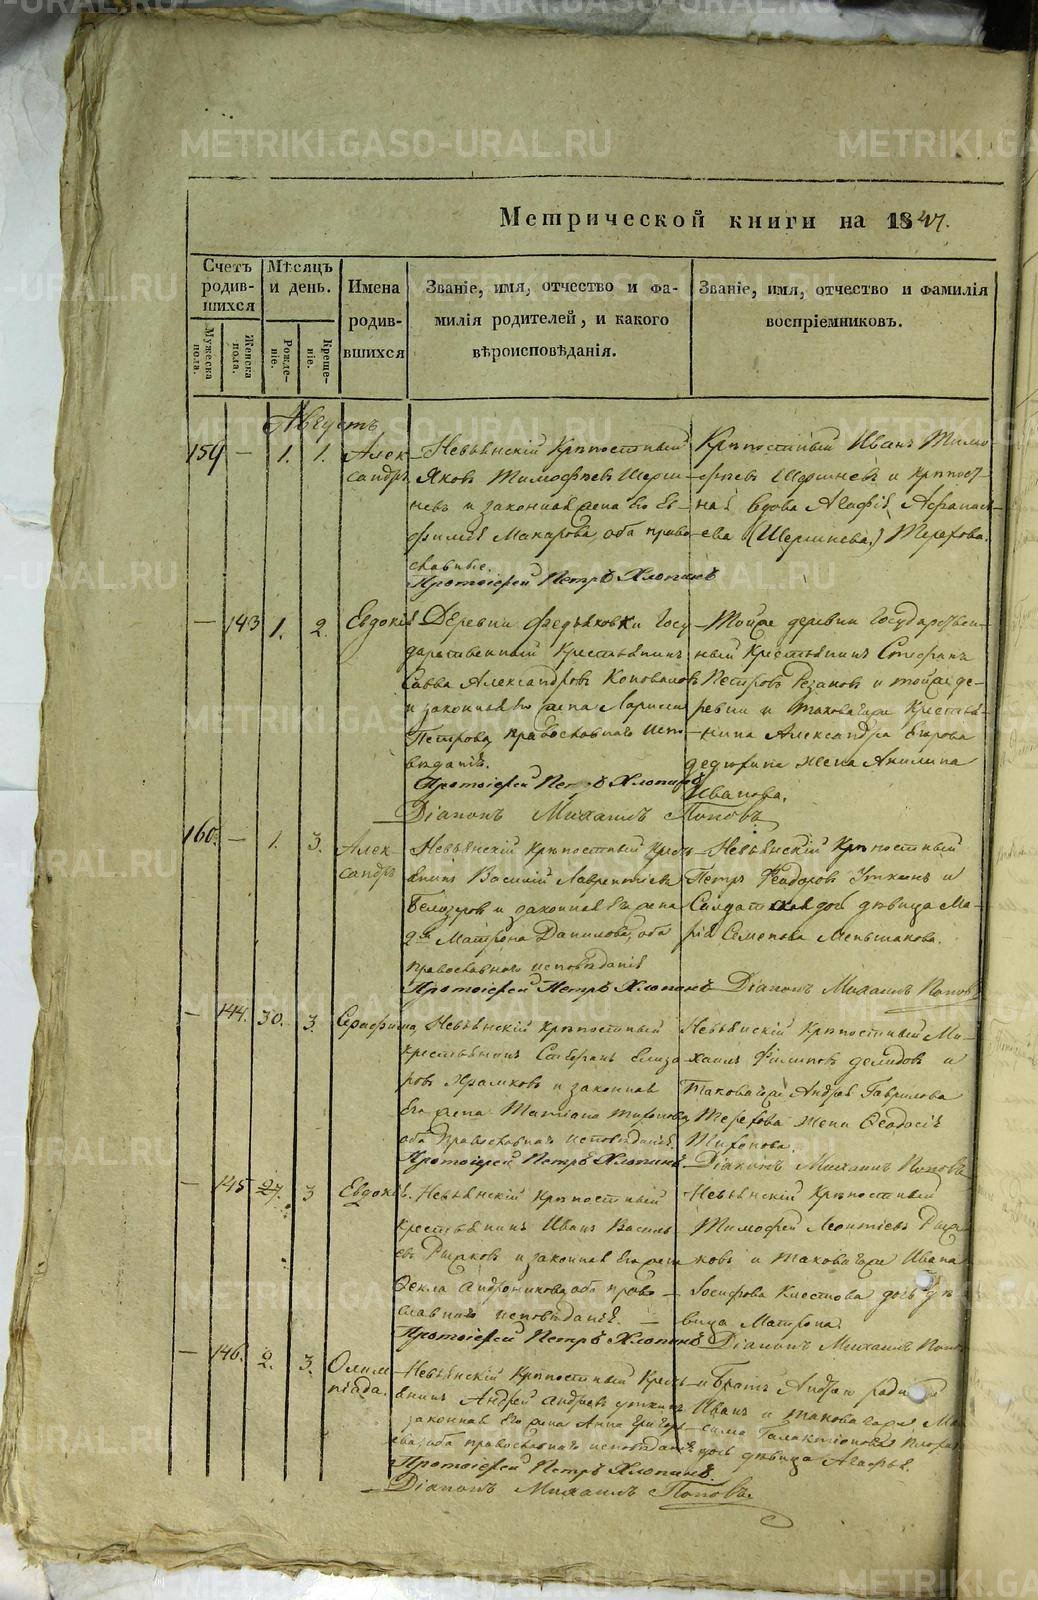 METRIKI.GASO-URAL.RU
Метрической книги на 1847.
Счетъ родив-шихся
Мѣсяцъ и день.
Имена родив-вшихся
Званіе, имя, отчество и фа-
милія родителей, и какого
вѣроисповѣданія.
Званіе, имя, отчество и фамилія
воспріемниковъ.
Мужеска пола.
Женска пола.
Рожде-ніе.
Креще-ніе.
Августъ
159 — 1. 1. Алек-сандръ
Невьянскій Крѣпостный
Яковъ Тимофѣевъ Шерши-
невъ и законная жена его Ев-
фимія Макарова, оба право-
славные.
Крѣпостный Иванъ Тимо-
фѣевъ Шершневъ и Крѣпост-
ная вдова Агафія Афанась-
ева (Шершнева) Терехова.
Протоіерей Петръ Хлопинъ
— 143 1. 2. Евдокія
Деревни Федьковки Госу-
дарственный Крестьянинъ
Савва Александровъ Коноваловъ
и законная его жена Лариса
Петрова, православнаго испо-
вѣданія.
Тойже деревни Государствен-
ный Крестьянинъ Стефанъ
Петровъ Резановъ и тойже де-
ревни и таковагоже Крестья-
нина Александра Егорова
жена Акилина
Иванова.
Протоіерей Петръ Хлопинъ
Діаконъ Михаилъ Поповъ
160. — 1. 3. Алек-сандръ
Невьянскій Крѣпостный Кресть-
янинъ Василій Лаврентіевъ
Белозеровъ и законная его жена
Матрона Данилова, оба
православнаго исповѣданія
Невьянскій Крѣпостный
Петръ Феодоровъ Уткинъ и
Солдатская дочь дѣвица Ма-
рія Семенова Меньшакова.
Протоіерей Петръ Хлопинъ Діаконъ Михаилъ Поповъ
— 144. 30. 3. Серафима
Невьянскій крѣпостный
Крестьянинъ Стефанъ Елиза-
ровъ Храмковъ и законная
Его жена Татіана
оба Православнаго исповѣданія
Невьянскій Крѣпостный Ми-
хаилъ Филиповъ Демидовъ и
таковагоже Андрея Гаврилова
Терехова жена Феодосія
Тихонова.
Протоіерей Петръ Хлопинъ. Діаконъ Михаилъ Поповъ
— 145 27. 3 Евдокія.
Невьянскій Крѣпостный
Крестьянинъ Иванъ Василь-
евъ Рыжковъ и законная Его жена
Фекла Андроникова, оба право-
славнаго исповѣданія. —
Невьянскій Крѣпостный
Тимофей Леонтіевъ Рыж-
ковъ и таковагоже Ивана
Іосифова Клестова дочь дѣ-
вица Матрона.
Протоіерей Петръ Хлопинъ Діаконъ Михаилъ Поповъ
— 146. 2. 3. Олим-піада.
Невьянскій Крѣпостный Кресть-
янинъ Андрей Андреевъ Уткинъ
и законная Его жена Анна Григорь-
ева, оба православнаго исповѣданія
Братъ Андрею родной
Иванъ и таковагоже Мак-
сима Галактіонова
дочь дѣвица Агафья.
Протоіерей Петръ Хлопинъ.
Діаконъ Михаилъ Поповъ.